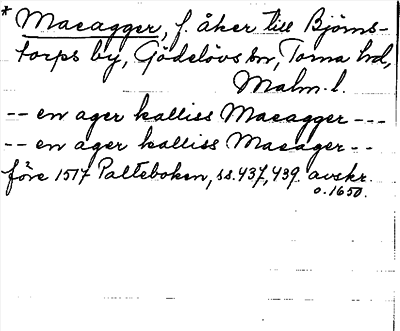 * Macagger, f. åker till Björns-
torps by, Gödelövs sn, Torna hd,
Malm. l.
-- en ager kalliss Macagger ---
-- en ager kalliss Macager --
före 1517 Palteboken, ss. 437, 439. avskr.
o. 1650.